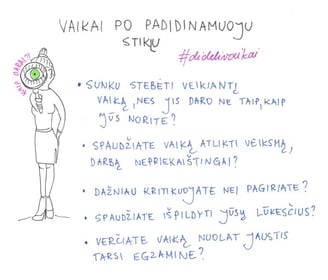 VAIKAI PO PADIDINAMUOJU
STIKLU
#didelivaikai
KAIP DARBAI?
• SUNKU STEBĖTI VEIKIANTĮ
VAIKĄ, NES JIS DARO NE TAIP, KAIP
JŪS NORITE?
• SPAUDŽIATE VAIKĄ ATLIKTI VEIKSMĄ,
DARBĄ NEPRIEKAIŠTINGAI?
• DAŽNIAU KRITIKUOJATE NEI PAGIRIATE?
• SPAUDŽIATE IŠPILDYTI JŪSŲ LŪKESČIUS?
• VERČIATE VAIKĄ NUOLAT JAUSTIS
TARSI EGZAMINE?